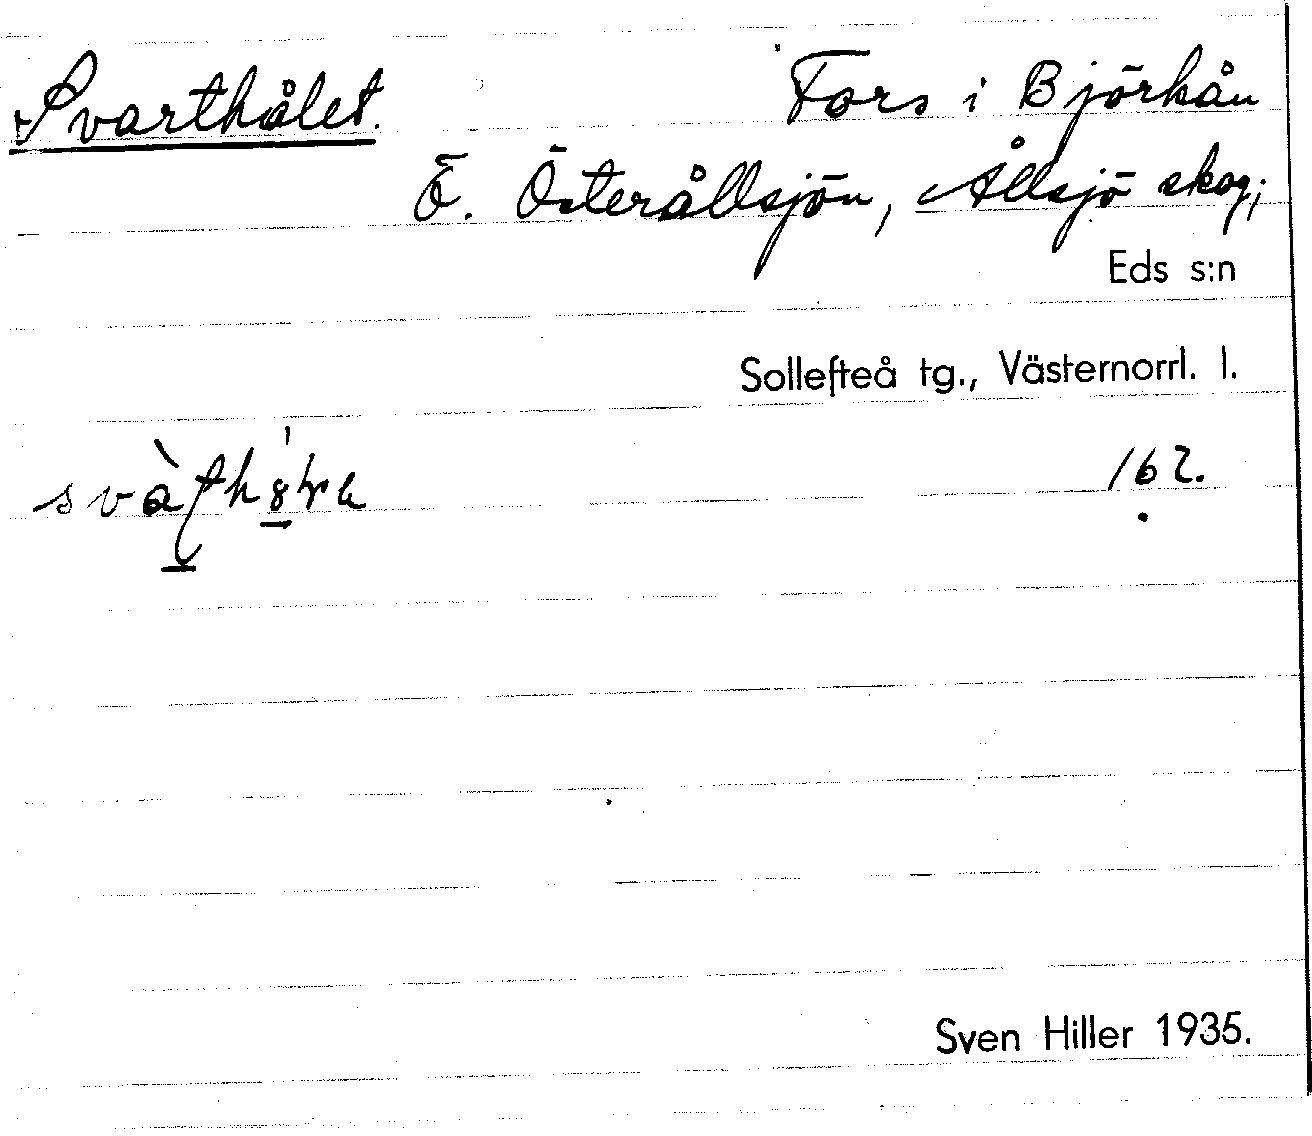 Svarthålet. Fors i Björkån
Ö. Österållsjön, Ållsjö skog;
Eds s:n
Sollefteå tg., Västernorrl. l.
162.
Sven Hiller 1935.